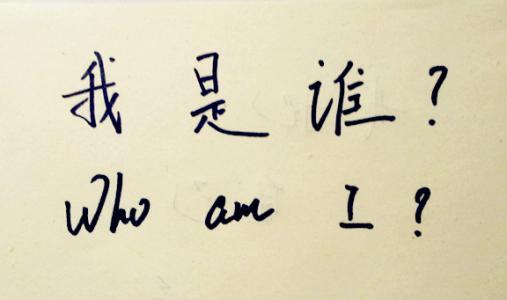 我是谁？
Who am I?